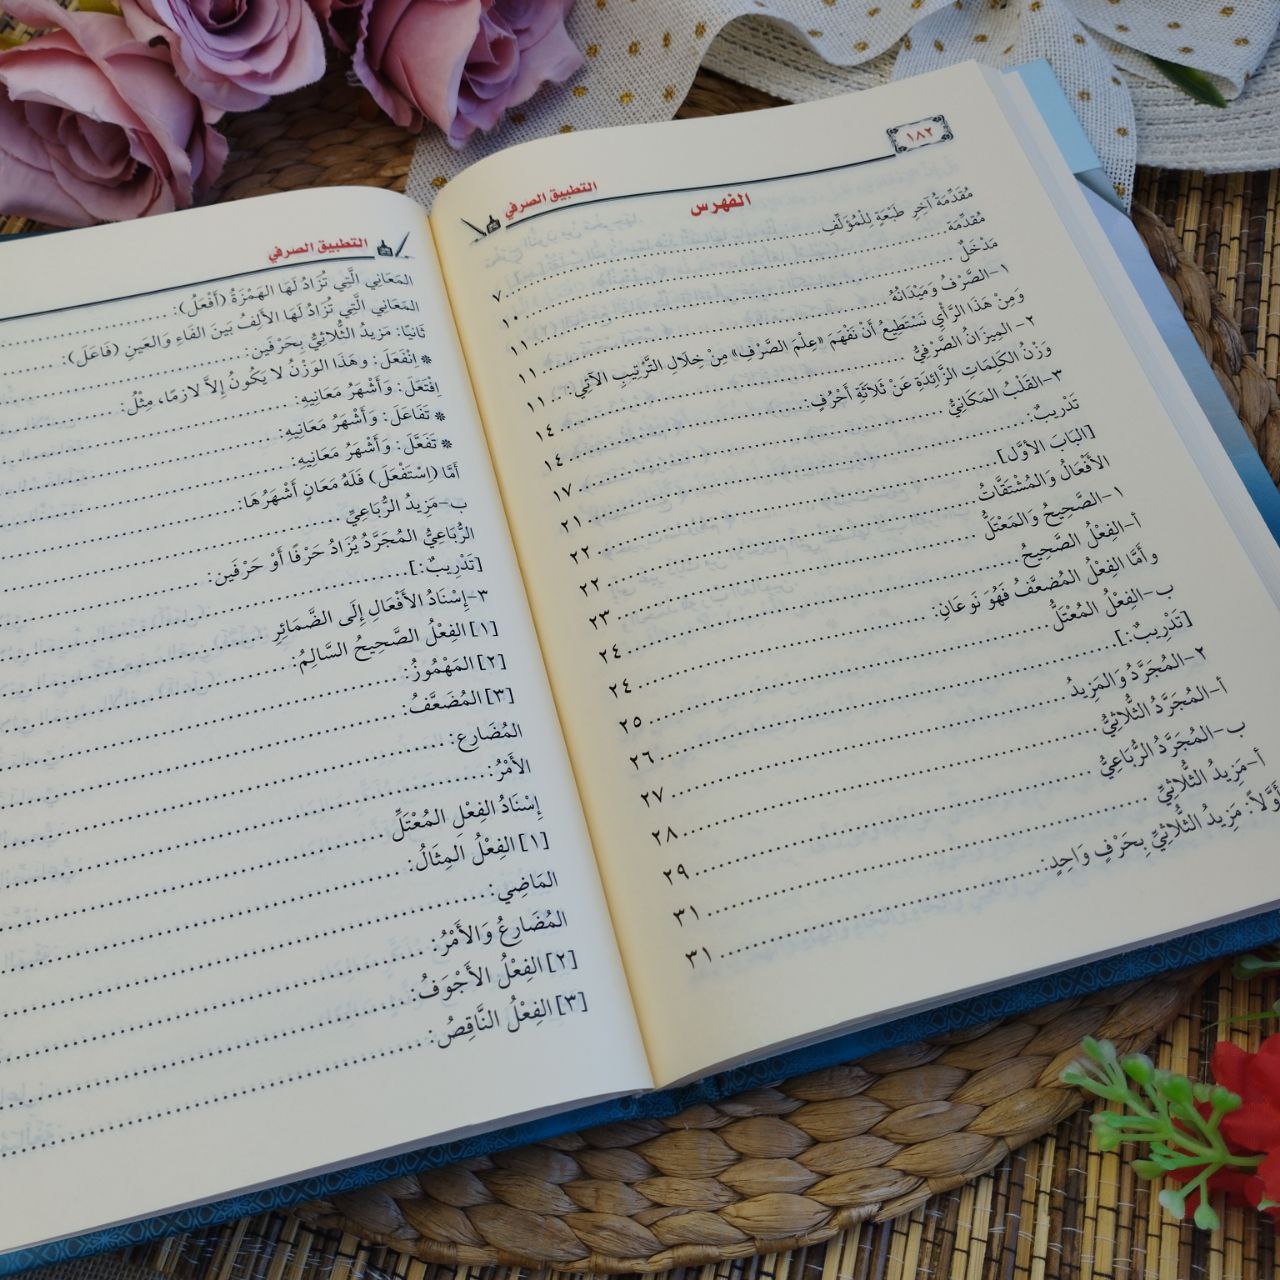 ١٨٢
التطبيق الصرفي
الفهرس
مُقَدِّمَةُ آخِرِ طَبْعَةٍ لِلْمُؤَلِّفِ ٧
مُقَدِّمَة ١٠
مَدْخَلٌ ١١
١-الصَّرْفُ وَمَيْدَانُهُ ١١
وَمِنْ هَذَا الرَّأْيِ نَسْتَطِيعُ أَنْ نَفْهَمَ «عِلْمَ الصَّرْفِ» مِنْ خِلَالِ التَّرْتِيبِ الآتِي: ١١
٢- المِيزَانُ الصَّرْفِيُّ ١٤
وَزْنُ الكَلِمَاتِ الزَّائِدَةِ عَنْ ثَلَاثَةِ أَحْرُفٍ: ١٤
٣-القَلْبُ المَكَانِيُّ ١٧
تَدْرِيبٌ: ٢١
[البَابَ الأوَّل] ٢٢
الأَفْعَالُ وَالمُشْتَقَّاتُ ٢٢
١-الصَّحِيحُ وَالمَعْتَلُّ ٢٣
أ-الفِعْلُ الصَّحِيحُ ٢٤
وأَمَّا الفِعْلُ المُضعَّفُ فَهُوَ نَوعَانِ: ٢٤
ب-الفِعْلُ المُعْتَلُّ ٢٥
[تَدْرِيبٌ:] ٢٦
٢-المُجَرَّدُ وَالمَزِيدُ ٢٧
أ-المُجَرَّدُ الثُّلَاثِيُّ ٢٨
ب-المُجَرَّدُ الرُّبَاعِيُّ ٢٩
أ-مَزِيدُ الثُّلَاثِيِّ ٣١
أَوَّلاً: مَزِيدُ الثُّلَاثِيِّ بِحَرْفٍ وَاحِدٍ: ٣١
التطبيق الصرفي
المَعَانِي الَّتِي تُزَادُ لَهَا الهَمْزَةُ (أَفْعَلَ):
المَعَانِي الَّتِي تُزَادُ لَهَا الأَلِفُ بَينَ الفَاءِ وَالعَينِ (فَاعَلَ):
ثَانِيًا: مَزِيدُ الثُّلَاثِيُّ بِحَرْفَينِ:
* اِنْفَعَلَ: وهَذَا الوَزْنُ لا يَكُونُ إلاَّ لازمًا، مِثْلُ:
اِفْتَعَلَ: وَأَشْهَرُ مَعَانِيهِ:
* تَفَاعَلَ: وَأَشْهَرُ مَعَانِيهِ:
* تَفَعَّلَ: وَأَشْهَرُ مَعَانِيهِ:
أَمَّا (اسْتَفْعَلَ) فَلَهُ مَعَانٍ أَشْهَرُهَا:
ب-مَزِيدُ الرُّبَاعِيِّ
الرُّبَاعِيُّ المُجَرَّدُ يُزَادُ حَرْفًا أَوْ حَرْفَينِ:
[تَدْرِيبٌ:]
٣-إِسْنَادُ الأَفْعَالِ إِلَى الضَّمَائِرِ
[١] الفِعْلُ الصَّحِيحُ السَّالِمُ:
[٢] المَهْمُوزُ:
[٣] المُضَعَّفُ:
المُضَارِعُ:
الأَمْرُ:
إِسْنَادُ الفِعْلِ المُعْتَلِّ
[١] الفِعْلُ المِثَالُ:
المَاضِي:
المُضَارِعُ وَالأَمْرُ:
[٢] الفِعْلُ الأَجْوَفُ:
[٣] الفِعْلُ النَّاقِصُ: